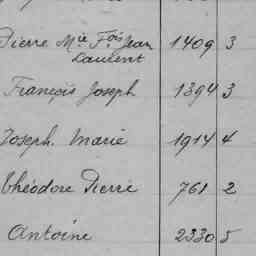 Pierre Mie Fois Jean 1409 3
Laurent
François Joseph 1394 3
Joseph Marie 1914 4
Théodore Pierre 761 2
Antoine 2330 5